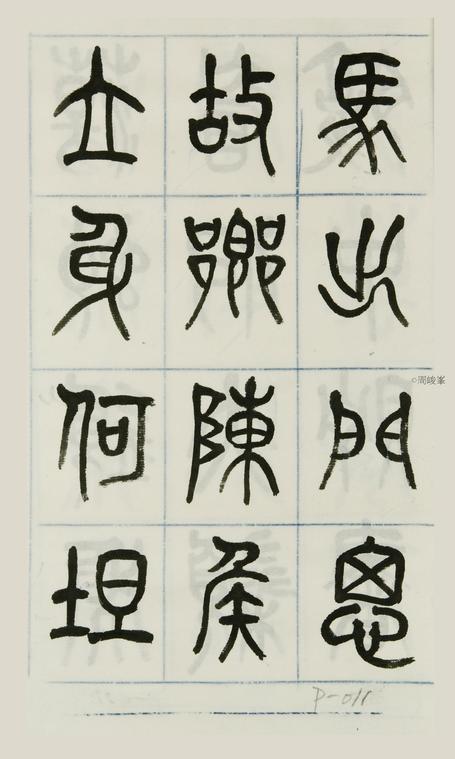 馬出門思
故鄉陳侯
立身何坦
©周峻峯
P-011